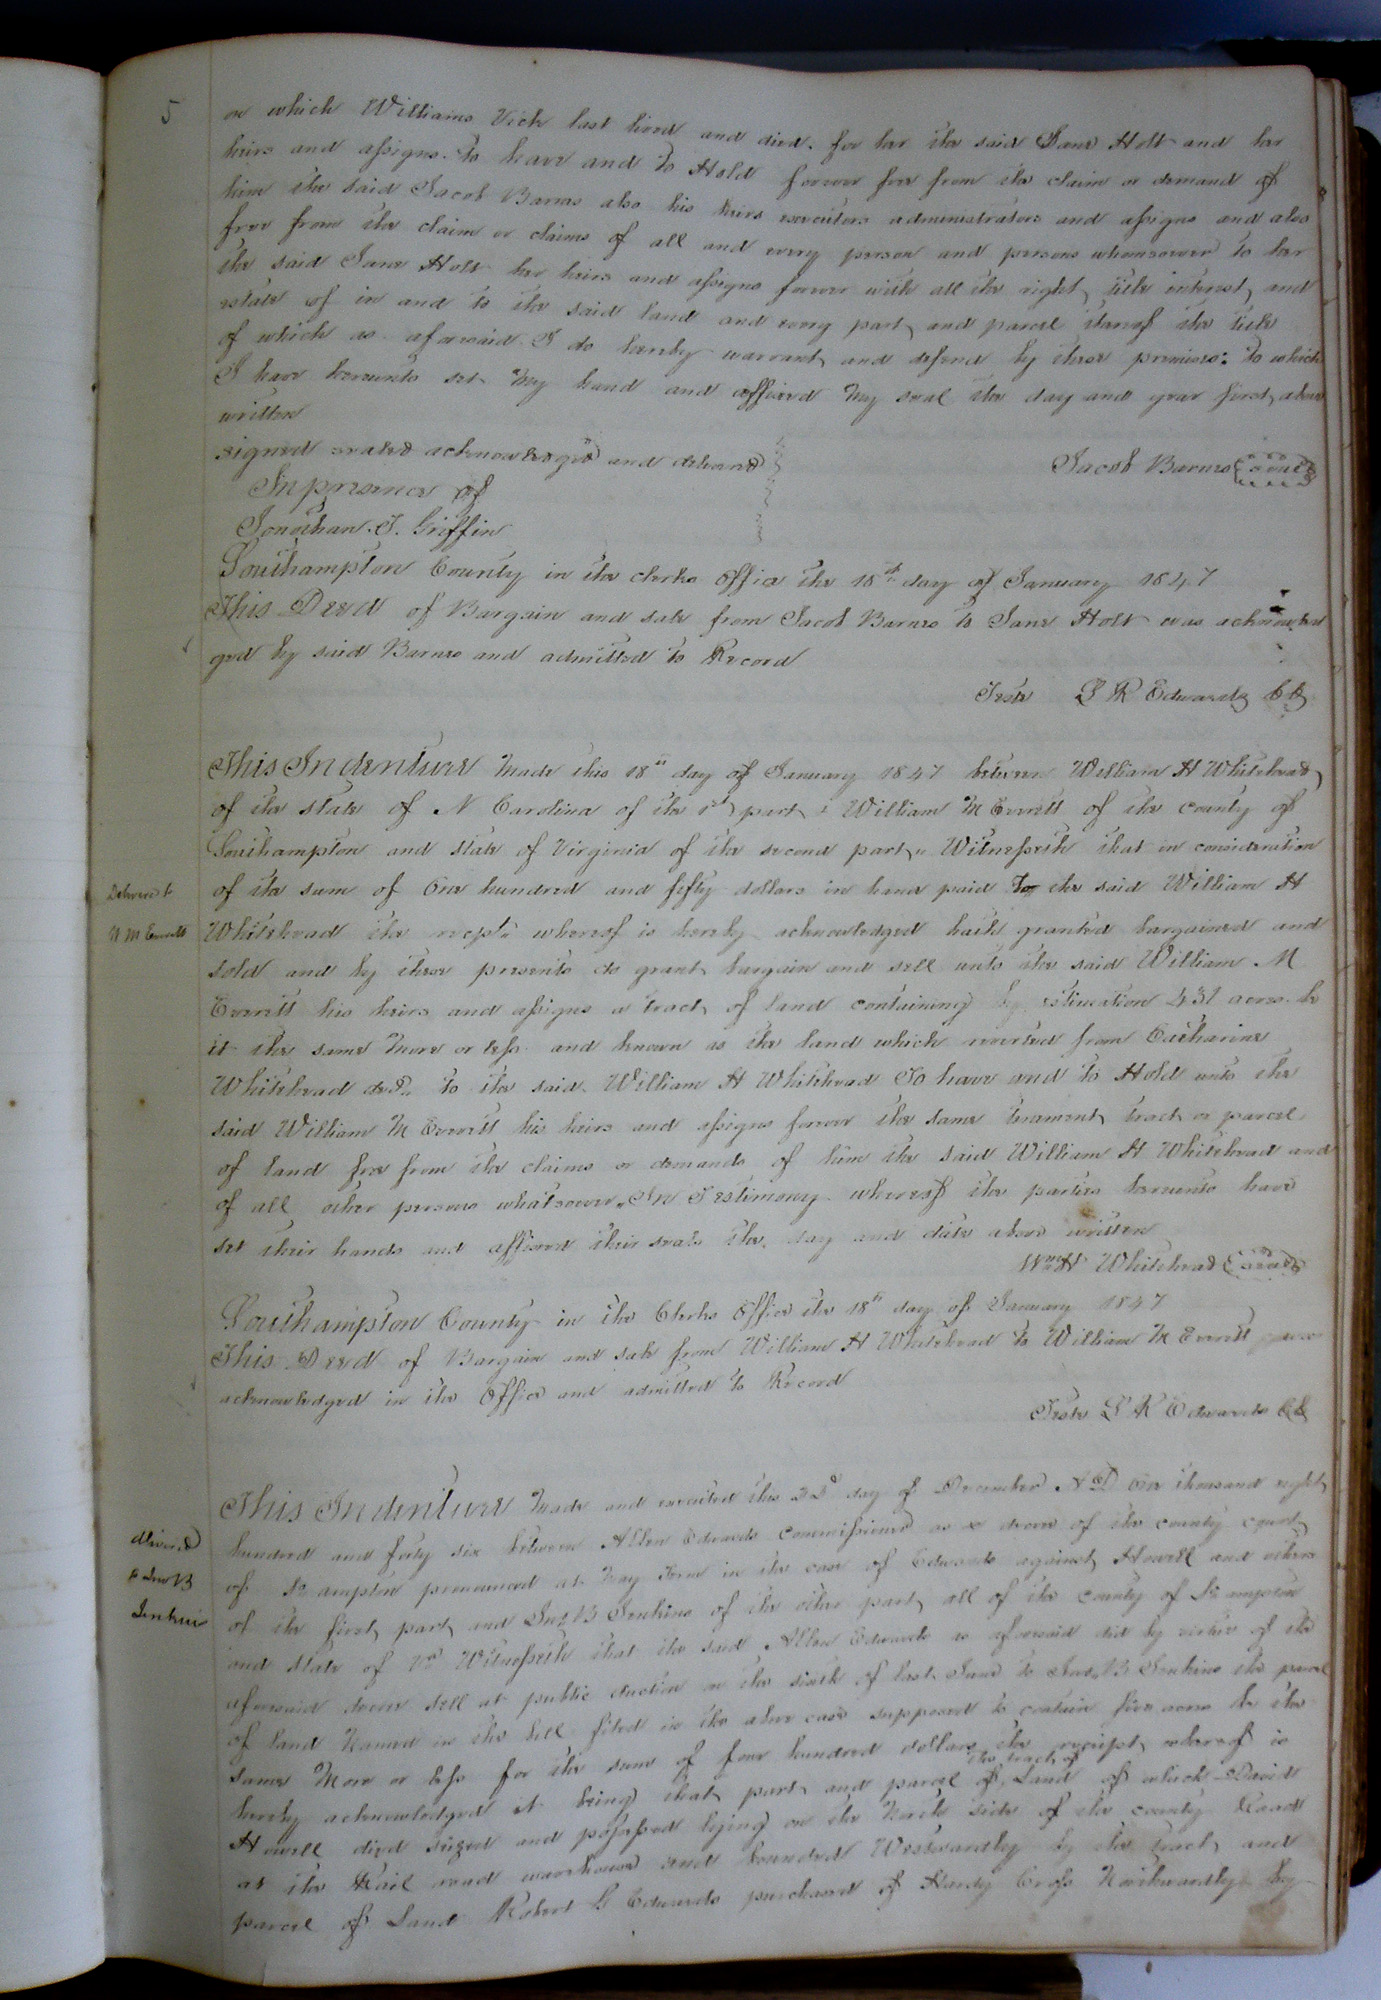 5
on which Williams Vick last lived and died. for her the said Jane Holt and her
heirs and assigns. To have and to Hold forever free from the claim or demand of
him the said Jacob Barnes also his heirs executors administrators and assigns and also
free from the claim or claims of all and every person and persons whomsoever to her
the said Jane Holt her heirs and assigns forever with all the right, title interest, and
estate of in and to the said land and every part, and parcel thereof the title
of which as aforesaid I do hereby warrant, and defend by these premises: To which
I have hereunto set My hand and affixed My seal the day and year first, above
written
signed sealed acknowledged and delivered
Jacob Barnes seal
In presence of
Jonathan. J. Griffin
Southampton County in the clerks office the 18th day of January 1847
This Deed of Bargain and sale from Jacob Barnes to Jane Holt was acknowled
ged by said Barnes and admitted to Record
Teste L R Edwards CC
This Indenture Made this 18th day of January 1847 between William H Whitehead,
of the state of N Carolina of the 1st part & William M Everett of the county of
Southampton and state of Virginia of the second part, Witnesseth that in consideration
Delivered to
of the sum of One hundred and fifty dollars in hand paid To the said William H
W M Everett
Whitehead the recpt. whereof is hereby acknowledged hath granted bargained and
sold and by these presents do grant, bargain and sell unto the said William M
Everett his heirs and assigns a tract, of land containing by estimation 431 acres be
it the same More or less and known as the land which reverted from Catharine
Whitehead decd. to the said. William H Whitehead To have and to Hold unto the
said William M Everett his heirs and assigns forever the same tenament, tract or parcel
of land free from the claims or demands of him the said William H Whitehead and
of all other persons whatsoever. In Testimony whereof the parties hereunto have
set their hands and affixed their seals the day and date above written
Wm H Whitehead seal
Southampton County in the Clerks Office the 18th day of January 1847
This Deed of Bargain and sale from William H Whitehead to William M Everett was
acknowledged in the Office and admitted to Record
Teste L R Edwards CC
This Indenture Made and executed this 22d day of December AD One thousand eight
hundred and forty six between Allen Edwards commissioner as decree of the county court
delivered
of Sthampton pronounced at May Term in the case of Edwards against, Howell and others
to Jno B
of the first, part, and Jno B Jenkins of the other part, all of the county of Sthampton
Jenkins
and state of Va Witnesseth that the said Allen Edwards as aforesaid did by virtue of the
aforesaid decree sell at public auction on the sixth of last June to Jno. B Jenkins the parcel
of land Named in the bill filed in the above case supposed to contain five acres be the
same More or less for the sum of four hundred dollars the receipt, whereof is
hereby acknowledged it being that, part, and parcel of the tract of Land of which David
Howell died seized and possessed lying on the North side of the county Road
at the Rail road warehouse and bounded Westwardly by the tract, and
parcel of Land Robert G Edwards purchased of Hardy Cross Northwardly by